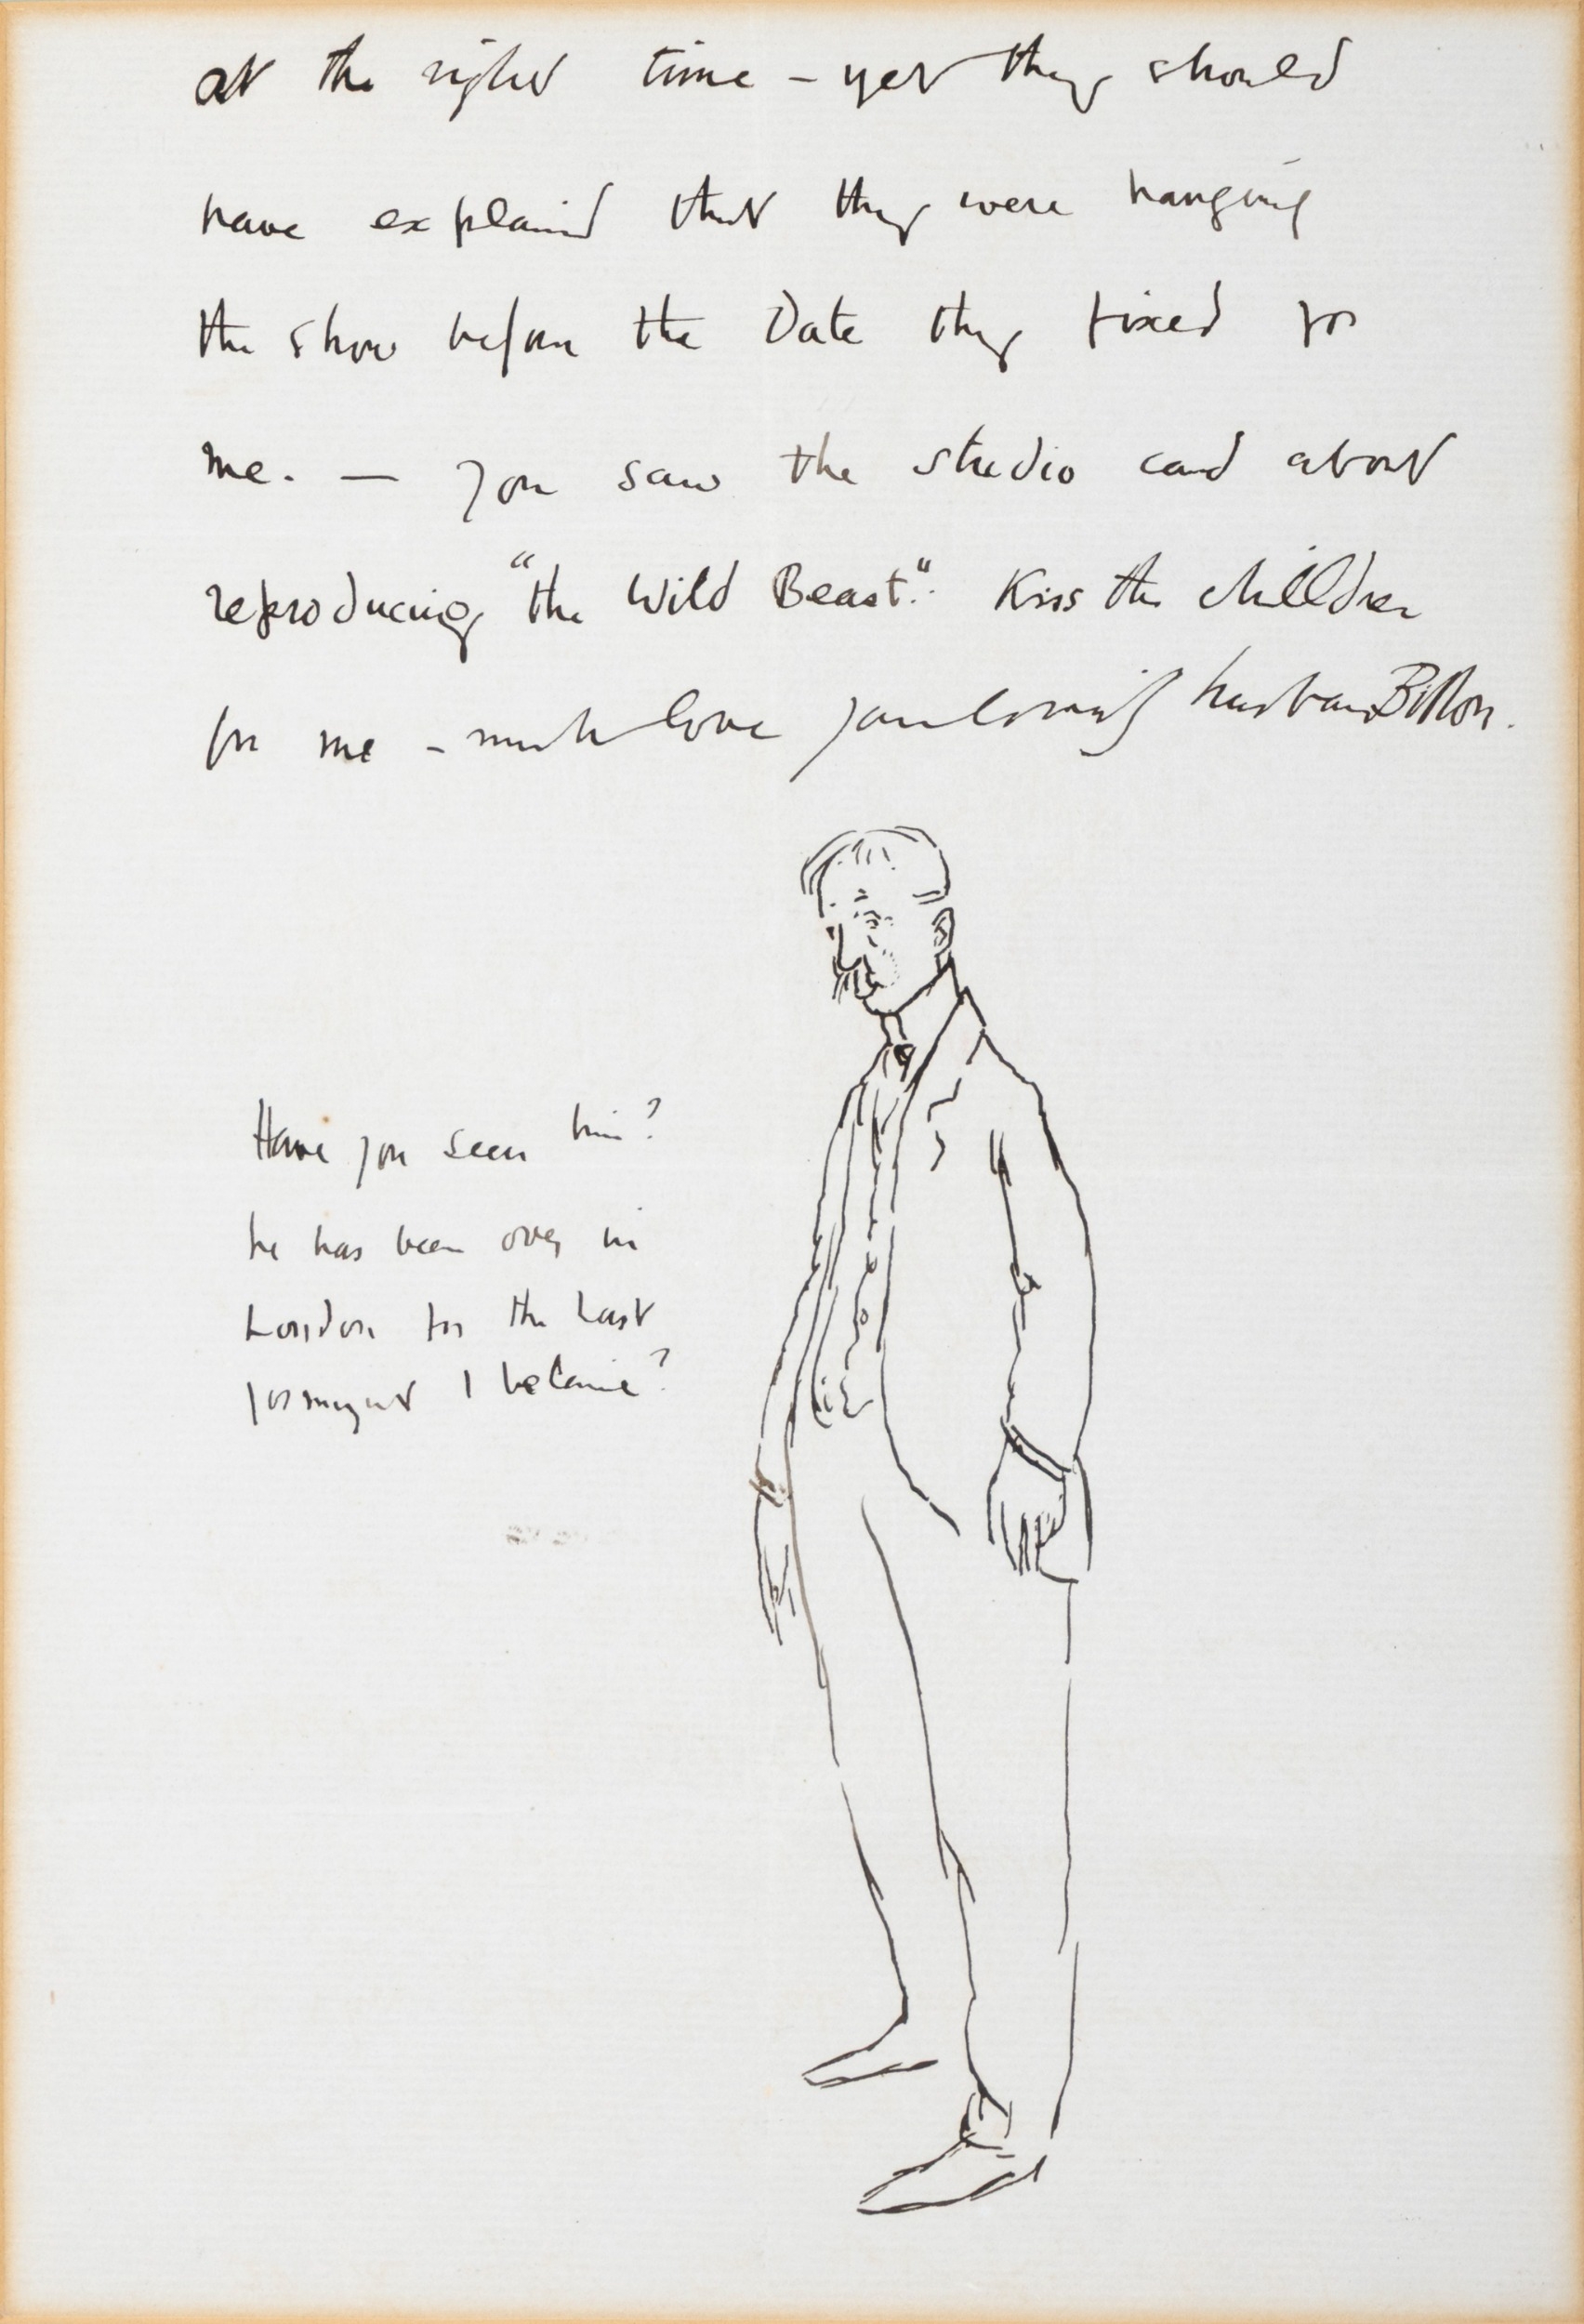 at the right time – yet they should
have explained that they were hanging
the show before the Date they fixed for
me. — you saw the studio card about
reproducing "the Wild Beast". Kiss the children
for me – much love your loving husband Billon.
Have you seen him?
he has been over in
London for the last
fortnight I believe?